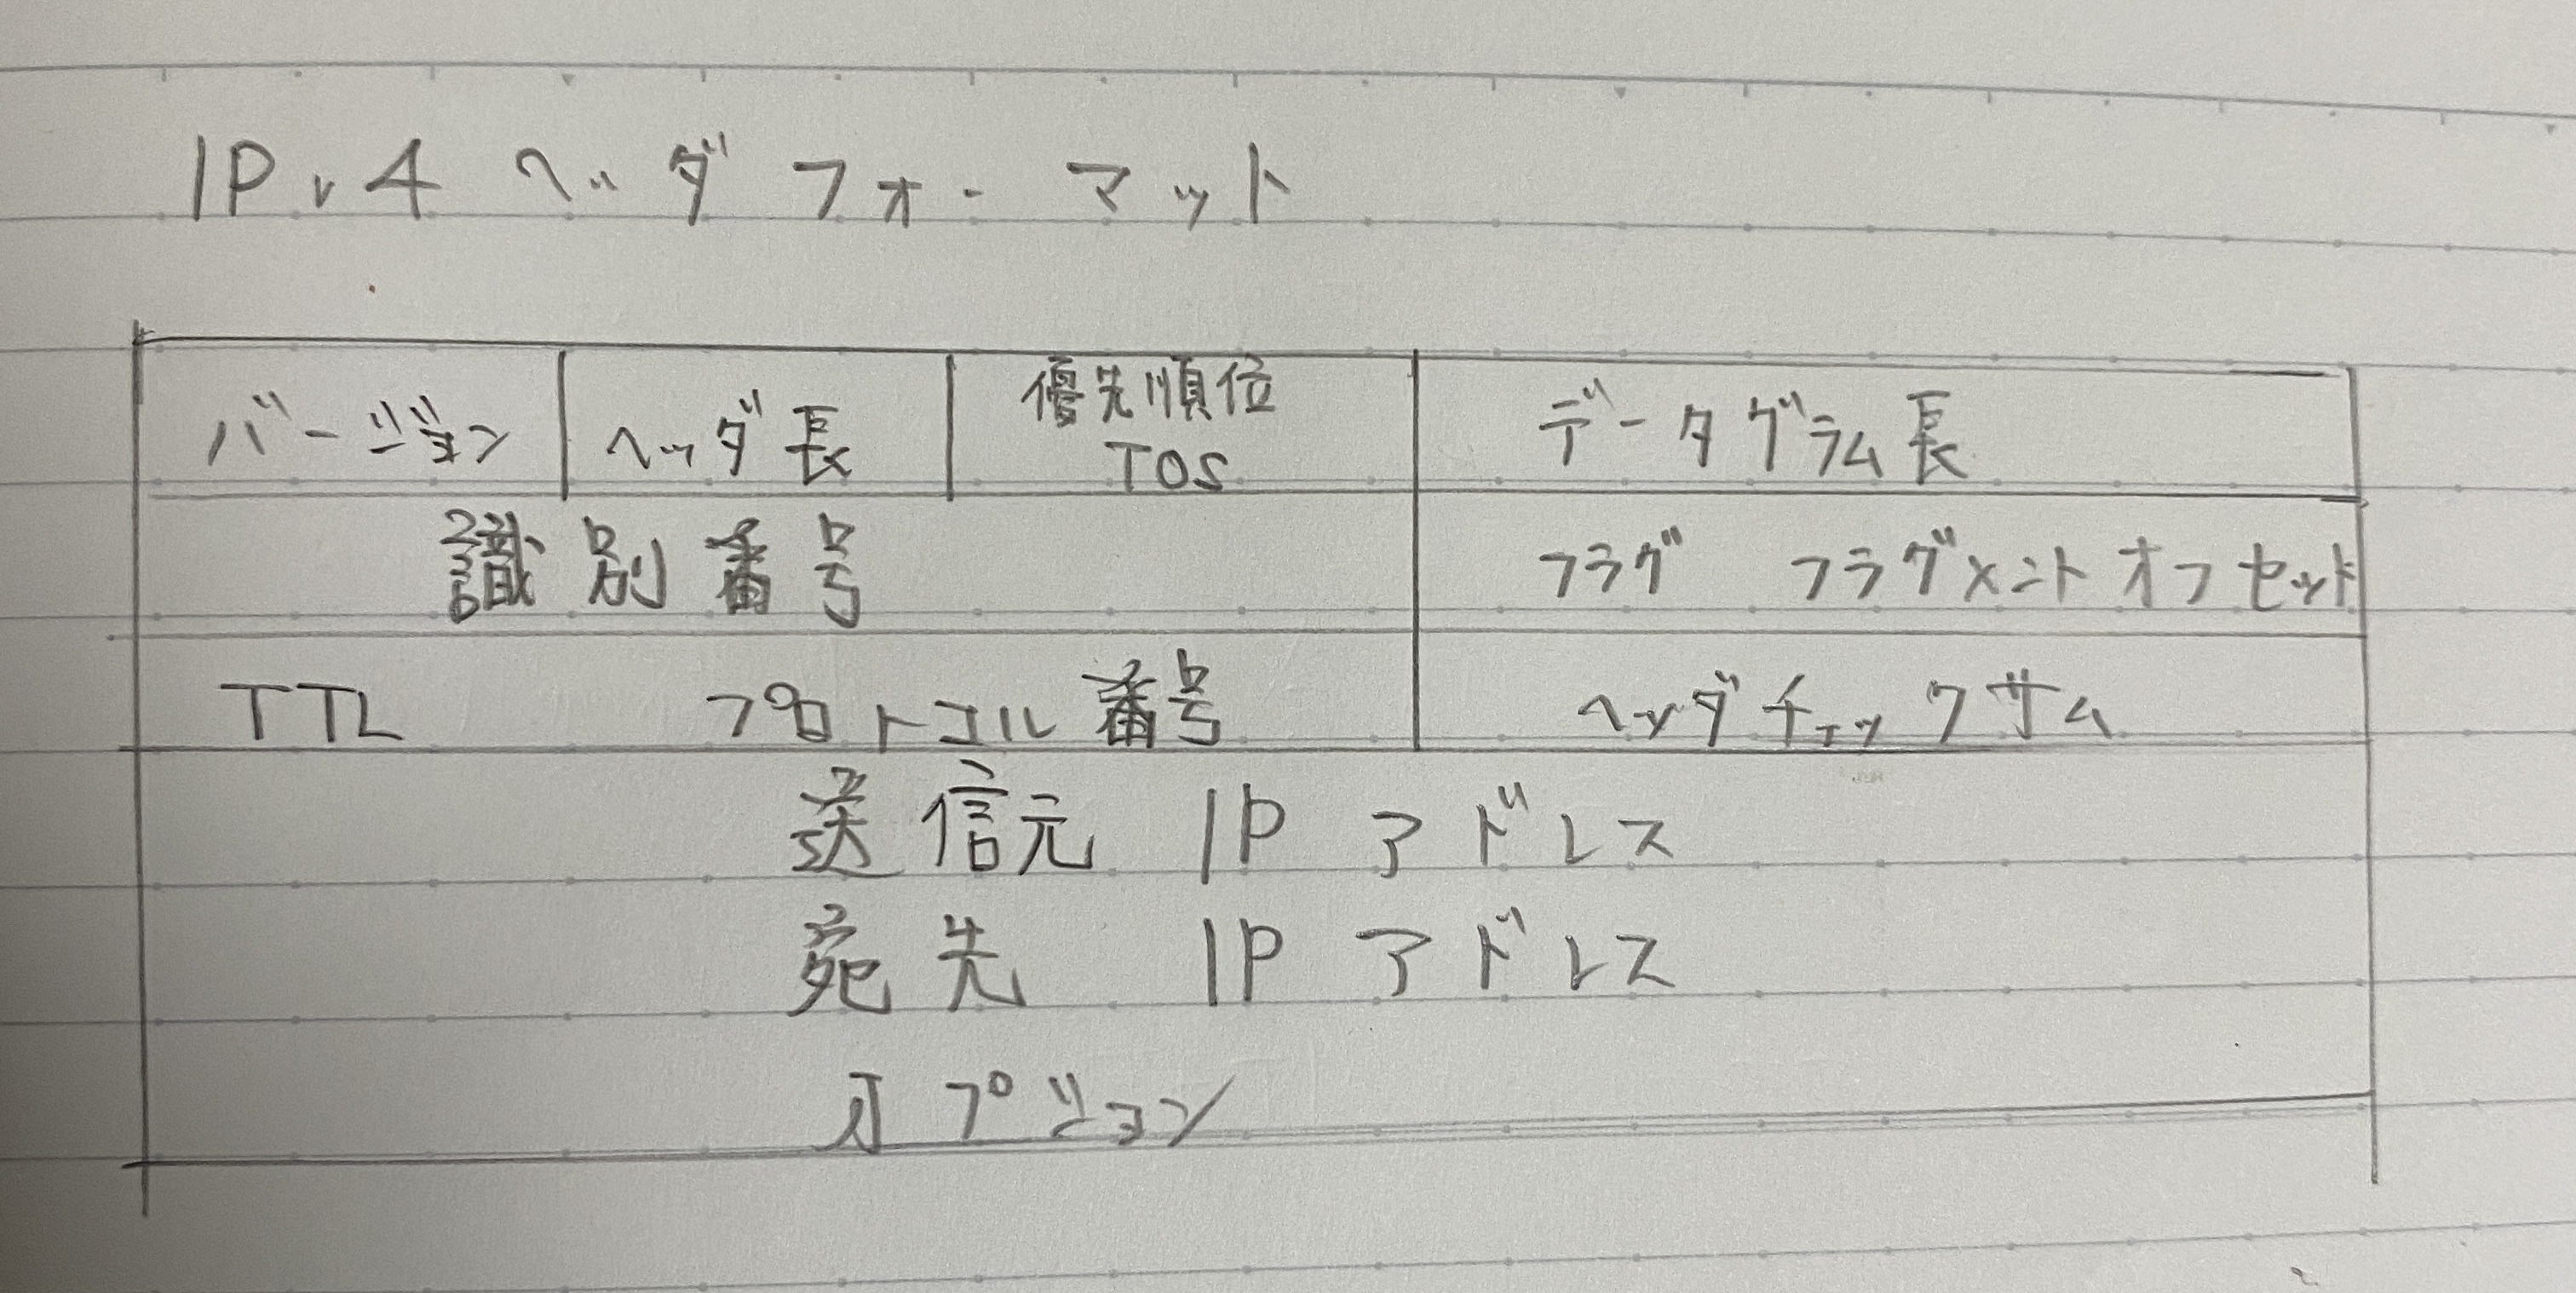 IPv4 ヘッダフォーマット
バージョン ヘッダ長 優先順位 TOS データグラム長
識別番号 フラグ フラグメントオフセット
TTL プロトコル番号 ヘッダチェックサム
送信元 IP アドレス
宛先 IP アドレス
オプション